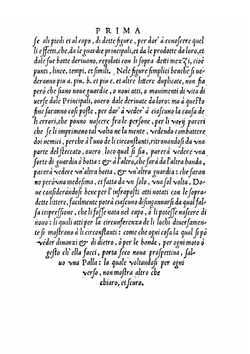 PRIMA
se ali piedi et al capo, di dette figure, per dar' à conoscere quel
li effetti, che, da le guardie principali, et da le prodotte da loro, et
dale sue botte derivano, regolati con li sopra detti mezzi, cioè
punti, linee, tempi, et simili. Ne le figure simplici benche si ve-
deranno più a, più, b, et più c, et altre littere duplicate, non
però che siano nove guardie, o noui atti, o mouimenti di vita di
uerse dale Principali, ouero dale deriuate da loro: ma à questo
fine saranno così poste, per dar' à veder' à ciascuno la causa de
li errori, che ponno nascere fra le persone, per li varij pareri
che se li imprimeno tal volta ne la mente, vedendo combattere
doi nemici, perche à l'uno de li circonstanti, ritronandosi da vna
parte del steccato, ouero loco qual si sia, parerà vedere vna
sorte di guardia ò botta: & à l'altro, che sarà da l'altra banda,
parerà vedere vn'altra botta, & vn'altra guardia: che saran
no però vna medesima, et fatta da vn solo, vna sol volta, Do=
ue considerandosi bene per l'infraposti atti notati con le sopra-
dette littere, facilmente potrà ciascuno disingannarsi da qual fal-
sa impressione, che li fosse nata nel capo, ò li potesse nascere di
nouo: li quali atti per la circumferenza de li lochi diuersamen-
te si mostrano à li circonstanti: come che ogni cosa la qual si pò
veder dinanzi & di dietro, ò per le bande, per ogni moto ò
gesto ch'ella facci, porta seco noua prospettiua, sal-
uo vna Palla: la quale voltandosi per ogni
verso, non mostra altro che
chiaro, et scuro.